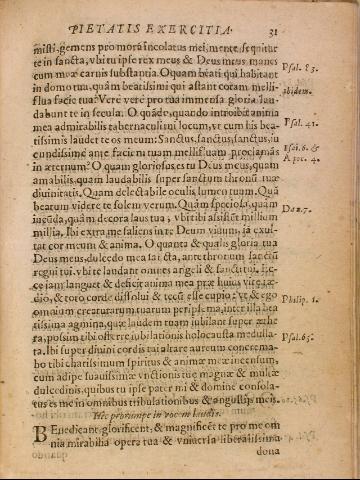 PIETATIS EXERCITIA. 31
misti, gemens pro mora incolatus mei, mente sequitur
te in sancta, vbi tu ipse rex meus & Deus meus manes
cum meæ carnis substantia. O quam beati qui habitant
in domo tua, quàm beatissimi qui astant coram melli-
flua facie tua? Verè verè pro tua immensa gloria lau-
dabunt te in secula. O quãdo, quando introibit anima
mea admirabilis tabernaculi in locum, vt cum his bea-
tissimis laudet te os meum: Sanctus, sanctus, sanctus, iu
cundissimè ante faciem tuam mellifluam proclamãs
in æternum? O quam gloriosus es tu Deus meus, quam
amabilis, quam laudabilis super sanctum thronũ tuæ
diuinitatis. Quam delectabile oculis, lumen tuum. Quã
beatum videre te solem verum. Quàm speciosa, quàm
iucũda, quàm decora laus tua, vbi tibi assistũt millium
millia. Ibi extra me saliens in te Deum viuum, iã exul-
tat cor meum & anima. O quanta & qualis gloria tua
Deus meus, dulcedo mea sãcta, ante thronum sanctũ
regni tui, vbi te laudant omnes angeli & sancti tui. Ec-
ce iam languet & deficit anima mea præ huius vitæ tæ-
dio, & toro corde dissolui & tecũ esse cupio: vt & ego
omnium creaturarum tuarum peripsema, inter illa bea
tissima agmina, quæ laudem tuam iubilant super æthe
ra, possim tibi offerre iubilationis holocausta medulla-
ta. Ibi super diuini cordis tui altare aureum concrema-
bo tibi charissimum spiritus & animæ meæ incensum,
cum adipe suauissimæ vnctionis tuæ magnæ & mulcæ
dulcedinis, quibus tu ipse pater mi & domine consola-
tus es me in omnibus tribulationibus & angustijs meis.
Hîc prorumpe in vocem laudis.
Benedicant, glorificent, & magnificẽt te pro me om
nia mirabilia opera tua & vniuersa liberalissima
dona
Psal. 83.
ibidem.
Psal. 41.
Esai. 6. &
Apoc. 4.
Dan. 7.
Philip. 1.
Psal. 65.